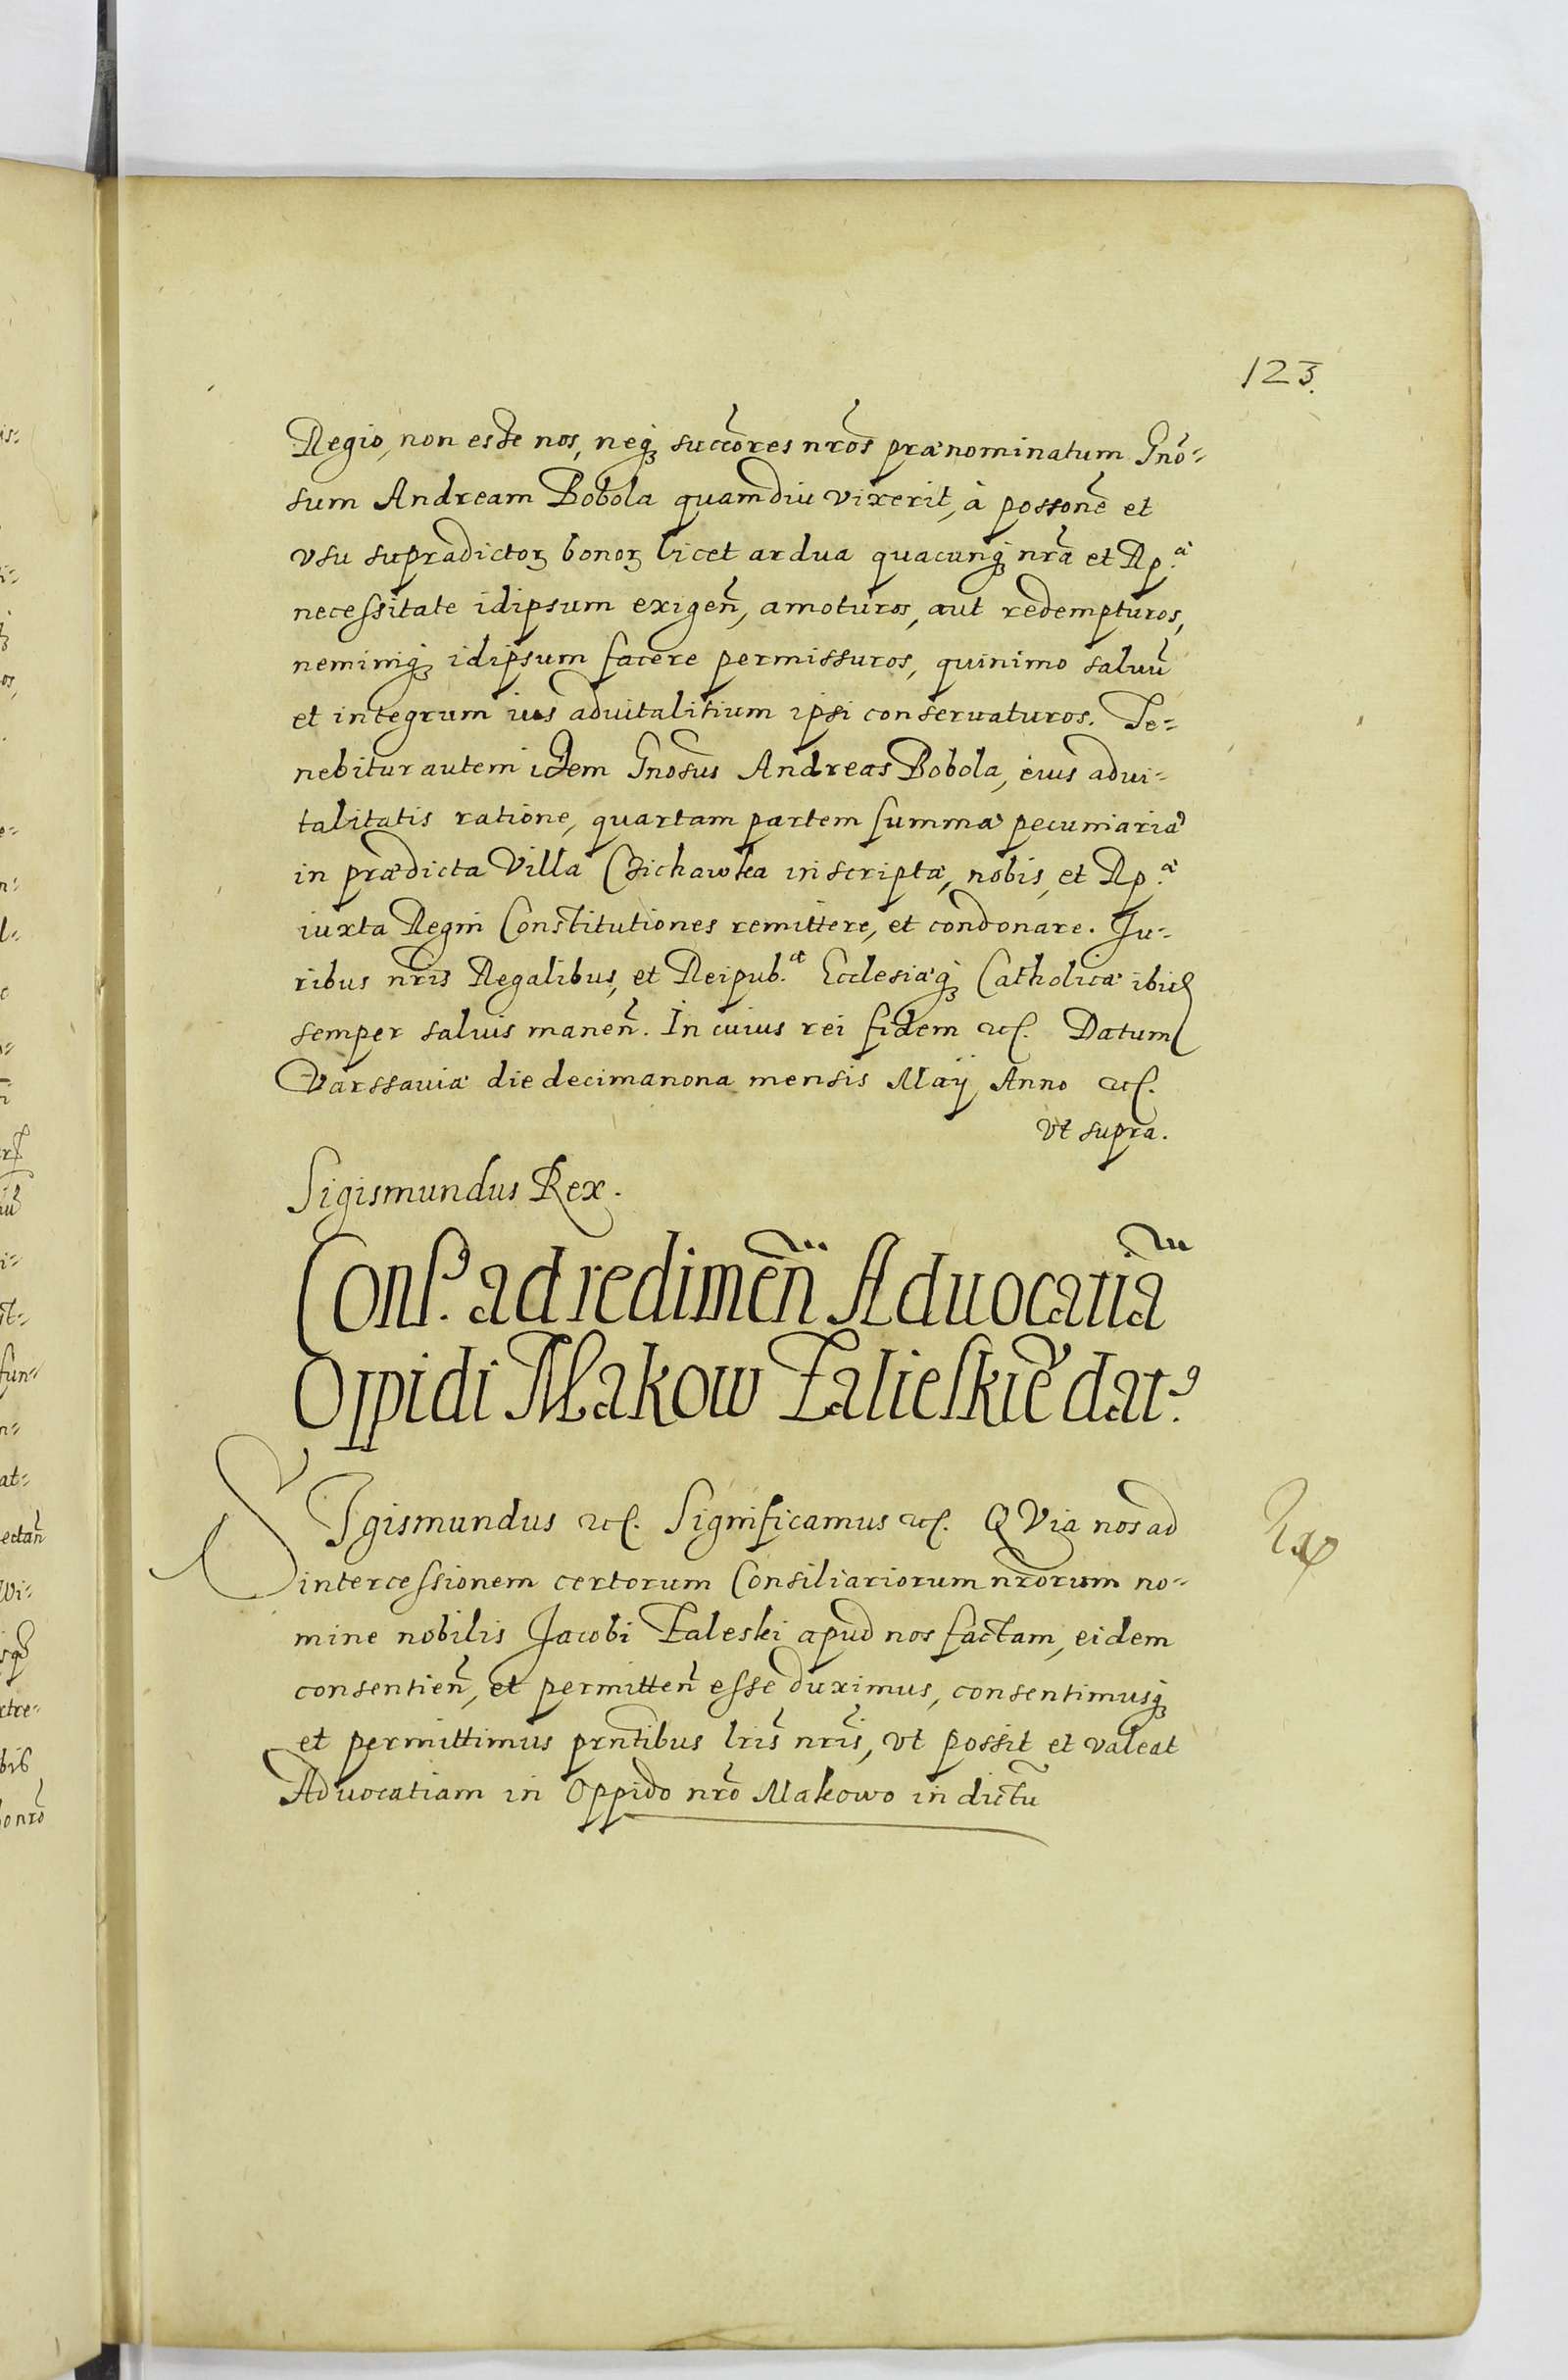 123.
Regio, non esse nos, neq₃ succ̃ores nrõs prænominatum Gnõ=
sum Andream Bobola quamdiu vixerit, à possonẽ et
vsu supradictoꝝ bonoꝝ licet ardua quacunq₃ nrã et Rp.æ
necessitate idipsum exigeñ, amoturos, aut redempturos,
neminiq₃ idipsum facere permissuros, quinimo saluũ
et integrum ius aduitalitium ipsi conseruaturos. Te=
nebitur autem idem Gnosus Andreas Bobola, eius adui=
talitatis ratione, quartam partem summæ pecuniariæ
in prædicta Villa Czichawka inscriptæ, nobis, et Rp.æ
iuxta Regni Constitutiones remittere, et condonare. Ju=
ribus nr̃is Regalibus, et Reipub.æ Ecclesiæq₃ Catholicæ ibid
semper saluis maneñ. In cuius rei fidem etc. Datum
Varssauiæ die decimanona mensis Maij Anno etc.
vt supra.
Sigismundus Rex.
Cons.⁹ ad redimeñ Aduocatiã
Oppidi Makow Zalieskiẽ dat.⁹
SIgismundus etc. Significamus etc. QVia nos ad
intercessionem certorum Consiliariorum nrorum no=
mine nobilis Jacobi Zaleski apud nos factam, eidem
consentieñ, et permitteñ esse duximus, consentimusq₃
et permittimus prñtibus lris̃ nris̃, vt possit et valeat
Aduocatiam in Oppido nrõ Makowo in dictũ